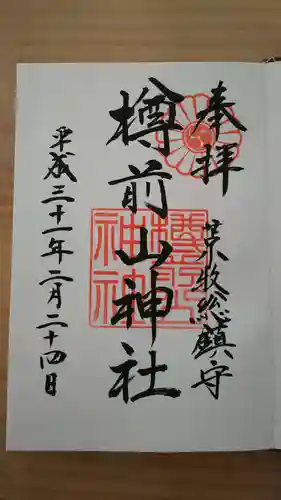 奉拝
苫小牧総鎮守
樽前山神社
平成三十一年二月二十四日